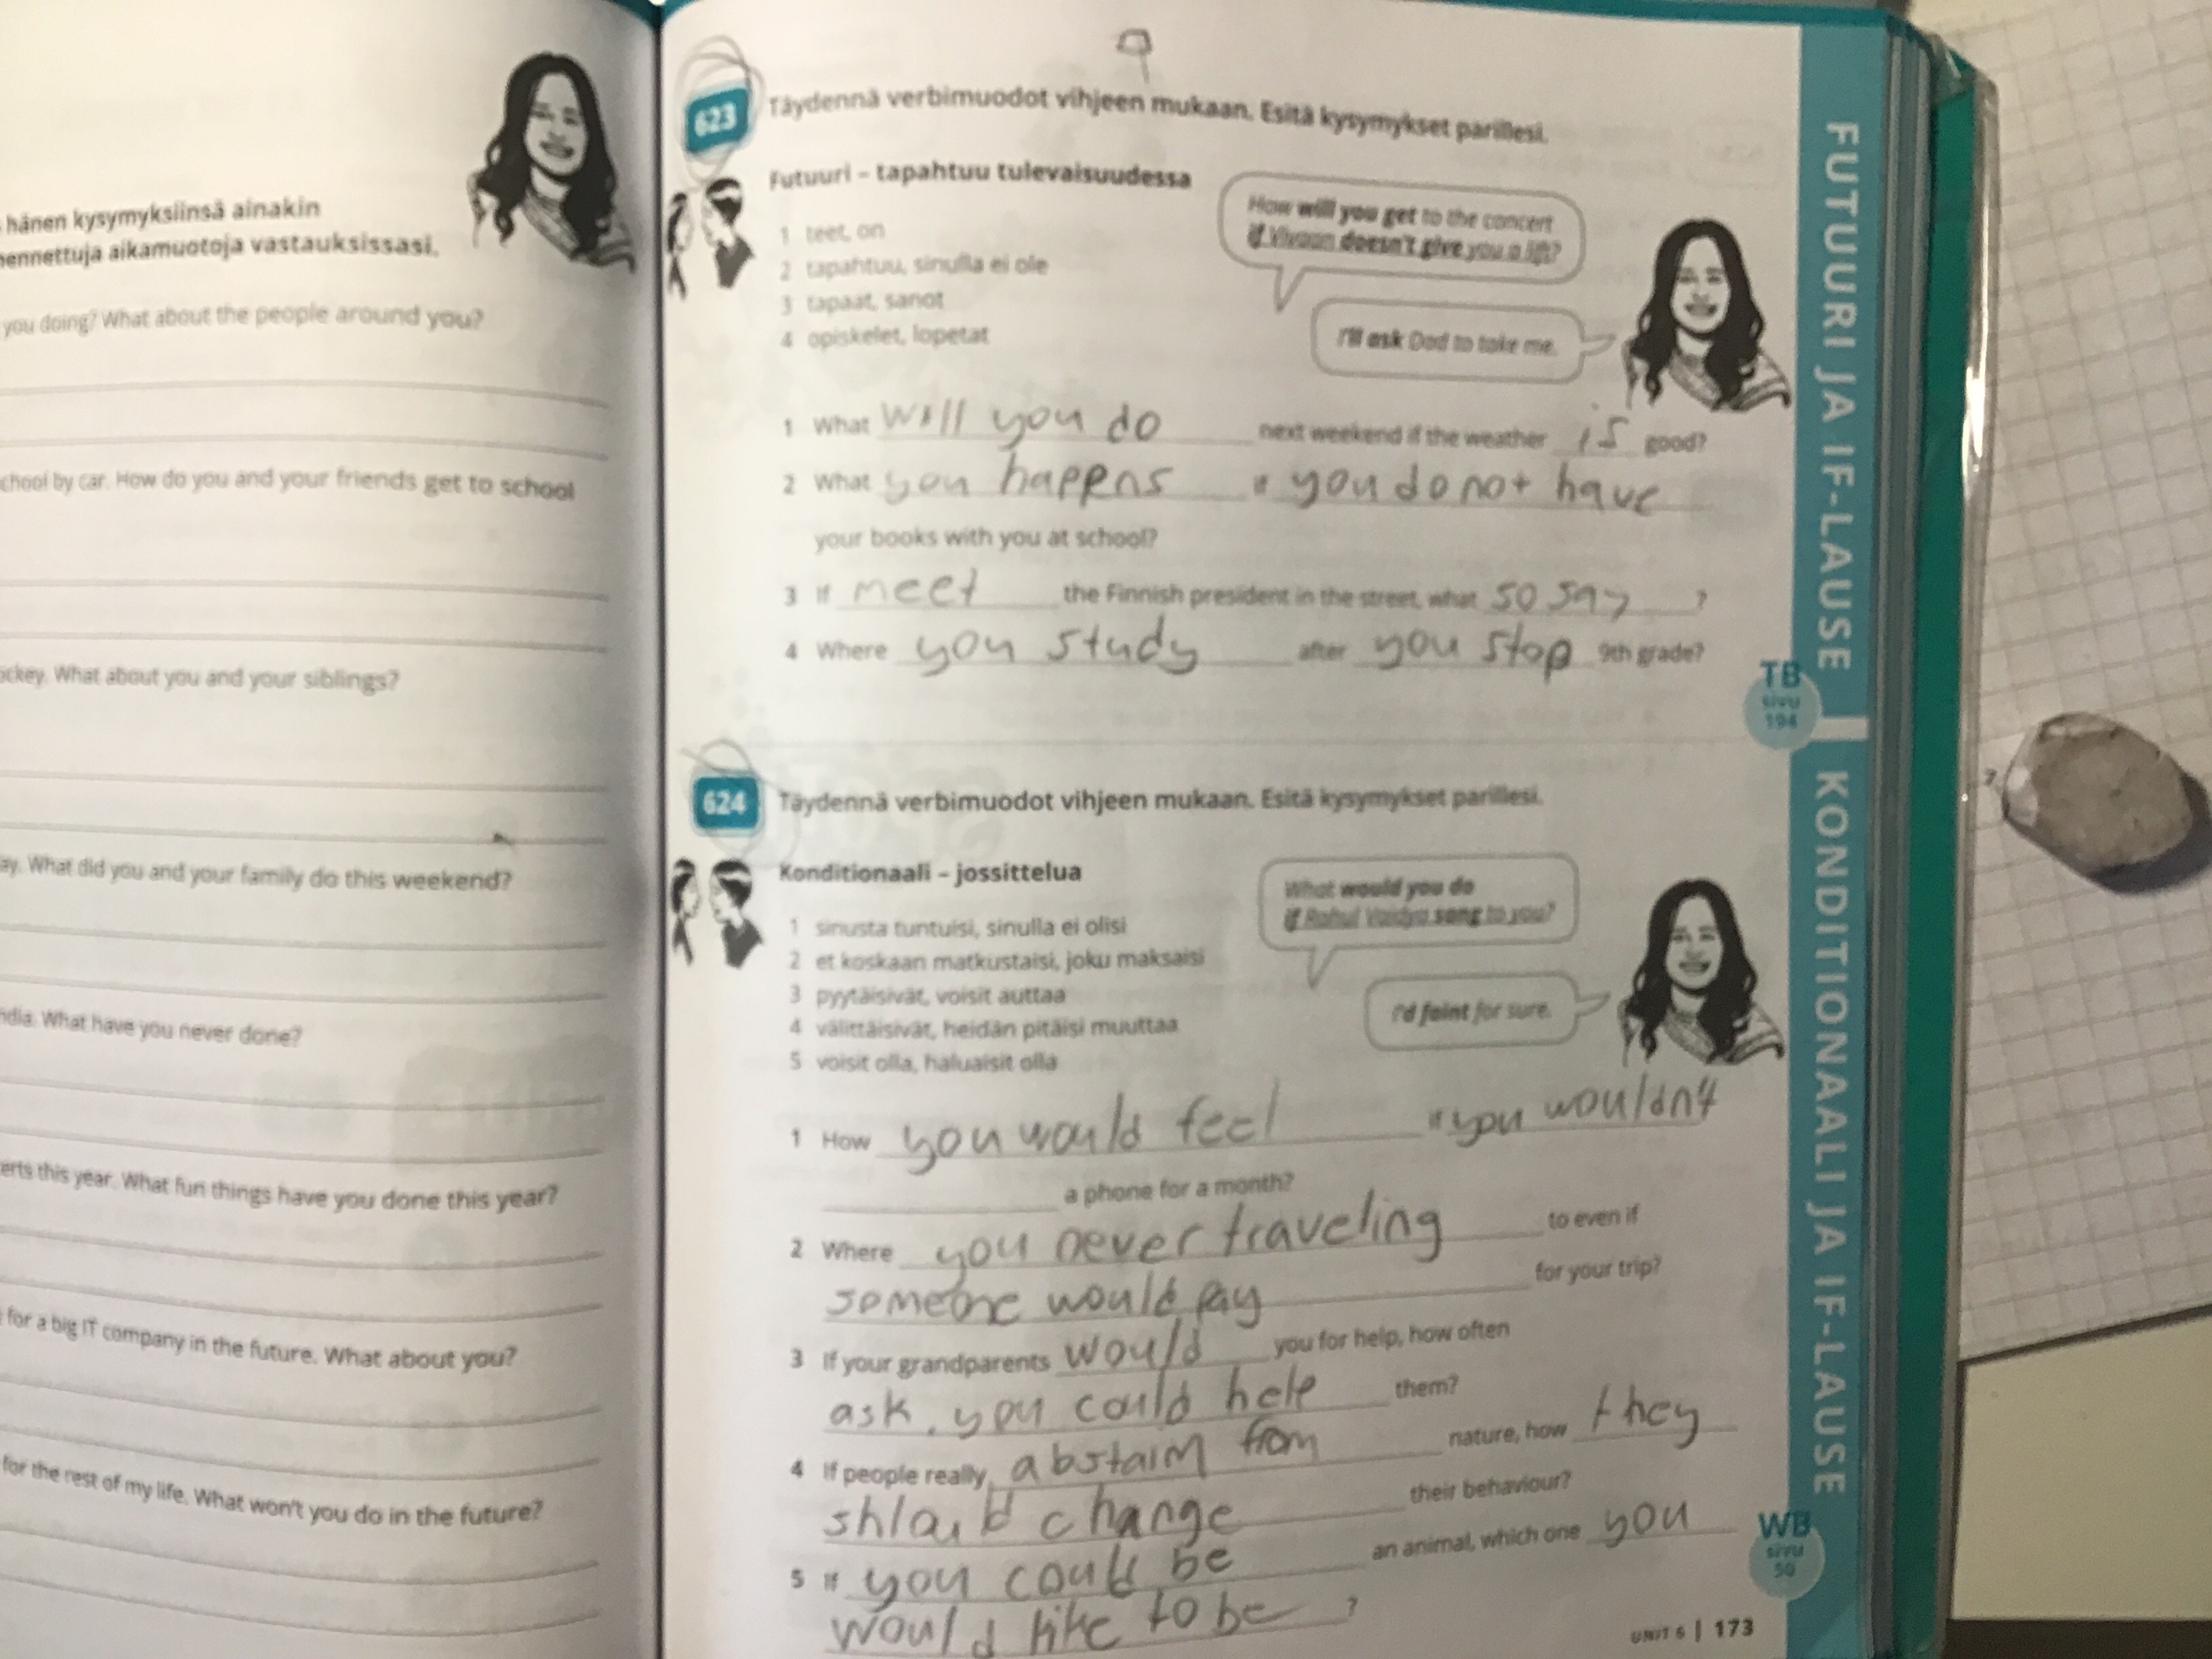 hänen kysymyksiinsä ainakin
aikamuotoja vastauksissasi.
you doing? What about the people around you?
by car. How do you and your friends get to school
What about you and your siblings?
What did you and your family do this weekend?
What have you never done?
this year. What fun things have you done this year?
for a big IT company in the future. What about you?
for the rest of my life. What won't you do in the future?
623 Täydennä verbimuodot vihjeen mukaan. Esitä kysymykset parillesi.
Futuuri – tapahtuu tulevaisuudessa
1 teet, on
2 tapahtuu, sinulla ei ole
3 tapaat, sanot
4 opiskelet, lopetat
How will you get to the concert
if Vivaan doesn't give you a lift?
I'll ask Dad to take me.
1 What will you do next weekend if the weather is good?
2 What you happens if you do not have
your books with you at school?
3 If meet the Finnish president in the street, what so say ?
4 Where you study after you stop 9th grade?
TB
sivu
194
624 Täydennä verbimuodot vihjeen mukaan. Esitä kysymykset parillesi.
Konditionaali – jossittelua
1 sinusta tuntuisi, sinulla ei olisi
2 et koskaan matkustaisi, joku maksaisi
3 pyytäisivät, voisit auttaa
4 välittäisivät, heidän pitäisi muuttaa
5 voisit olla, haluaisit olla
What would you do
if Rahul Vaidya sang to you?
I'd faint for sure.
1 How you would feel if you wouldn't
a phone for a month?
2 Where you never traveling to even if
someone would pay for your trip?
3 If your grandparents would you for help, how often
ask, you could help them?
4 If people really abstaim from nature, how they
change their behaviour?
5 If you could be an animal, which one you
would like to be ?
WB
sivu
50
UNIT 6 | 173
FUTUURI JA IF-LAUSE
KONDITIONAALI JA IF-LAUSE